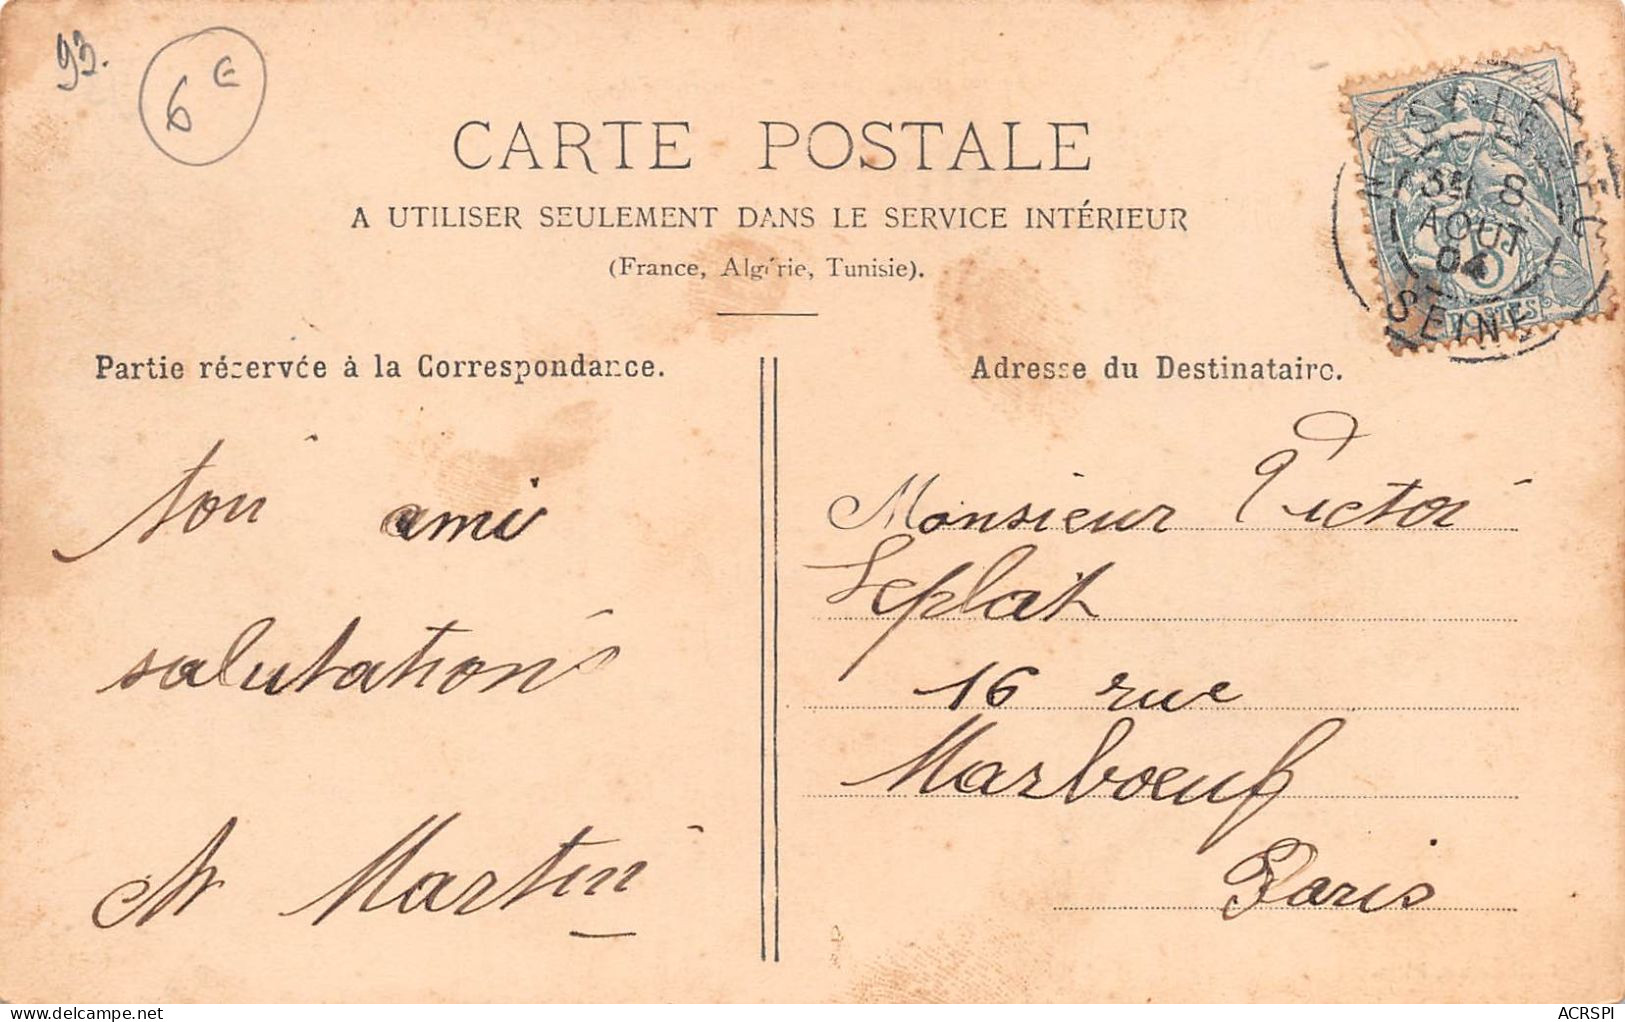 93.
6 €
CARTE POSTALE
A UTILISER SEULEMENT DANS LE SERVICE INTÉRIEUR
(France, Algérie, Tunisie).
NOISY-LE-SEC
8
AOUT
04
SEINE
POSTES
Partie réservée à la Correspondance.
Adresse du Destinataire.
ton ami
salutations
Martin
Monsieur Victor
Leplait
16 rue
Marboeuf
Paris
Delcampe.net
ACRSPI